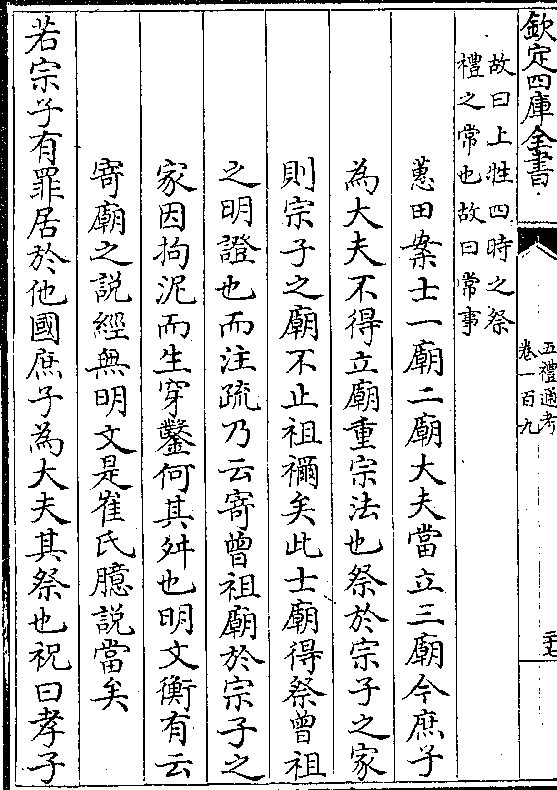 欽定四庫全書
五禮通考
卷一百九
故曰上牲四時之祭
禮之常也故曰常事
蕙田案士一廟二廟大夫當立三廟今庶子
為大夫不得立廟重宗法也祭於宗子之家
則宗子之廟不止祖禰矣此士廟得祭曾祖
之明證也而注疏乃云寄曾祖廟於宗子之
家因拘泥而生穿鑿何其舛也明文衡有云
寄廟之說經無明文是崔氏臆說當矣
若宗子有罪居於他國庶子為大夫其祭也祝曰孝子